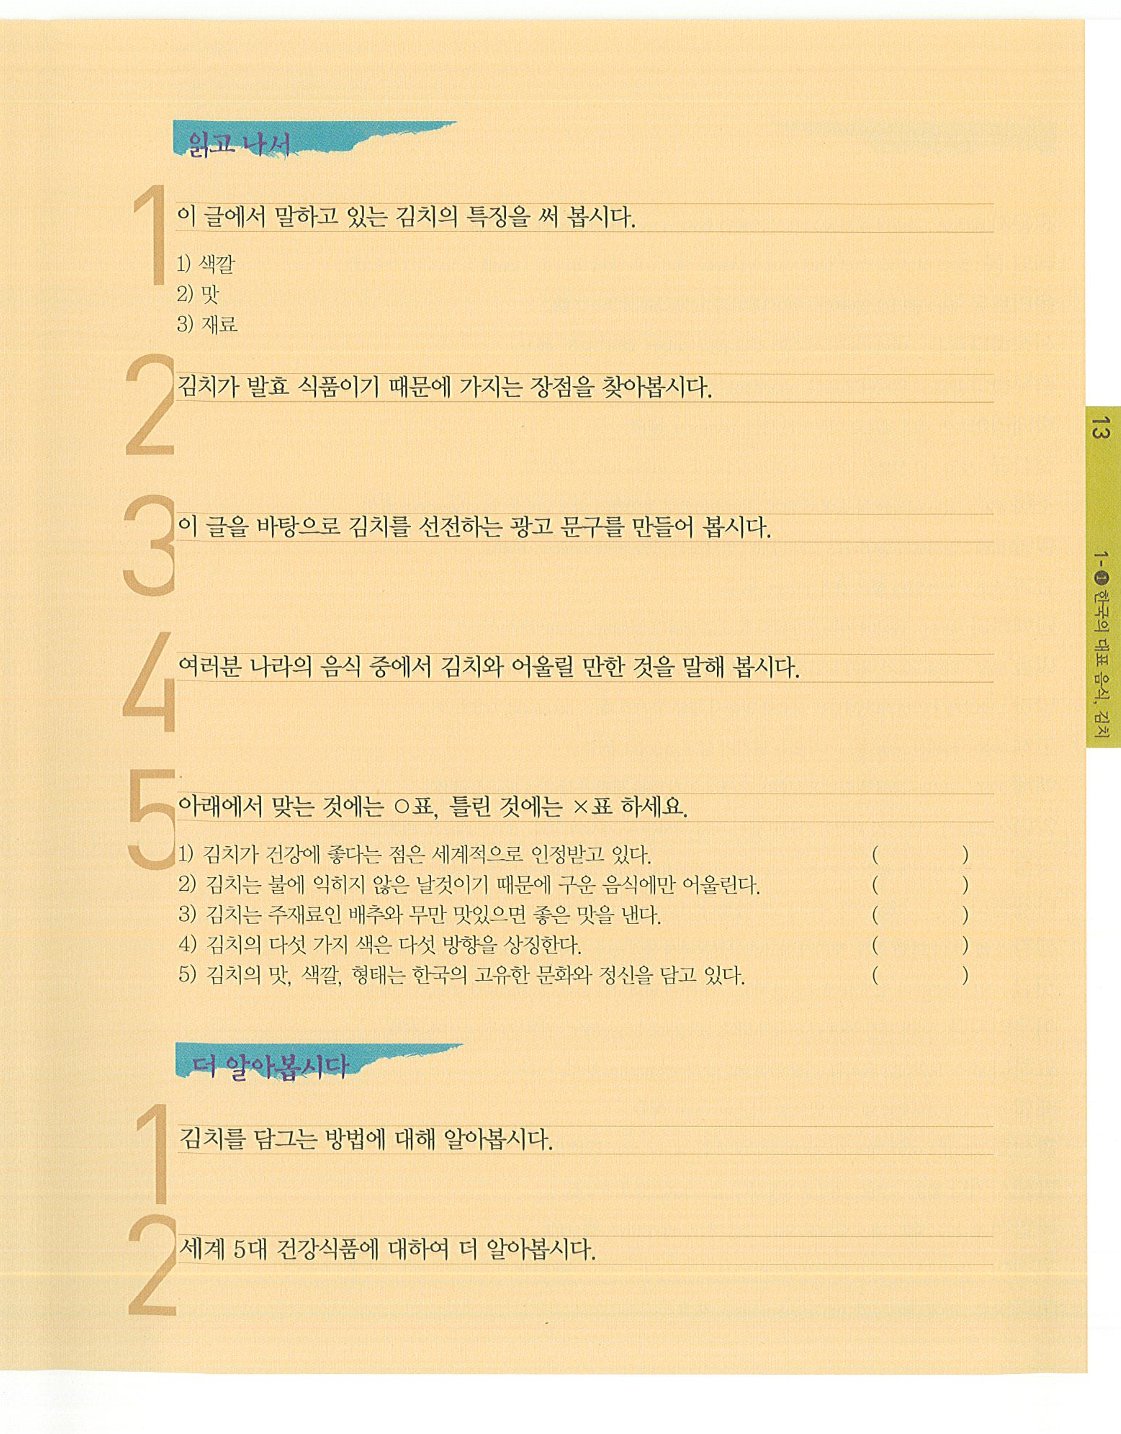 읽고 나서
1
이 글에서 말하고 있는 김치의 특징을 써 봅시다.
1) 색깔
2) 맛
3) 재료
2
김치가 발효 식품이기 때문에 가지는 장점을 찾아봅시다.
3
이 글을 바탕으로 김치를 선전하는 광고 문구를 만들어 봅시다.
4
여러분 나라의 음식 중에서 김치와 어울릴 만한 것을 말해 봅시다.
5
아래에서 맞는 것에는 ○표, 틀린 것에는 ×표 하세요.
1) 김치가 건강에 좋다는 점은 세계적으로 인정받고 있다. ( )
2) 김치는 불에 익히지 않은 날것이기 때문에 구운 음식에만 어울린다. ( )
3) 김치는 주재료인 배추와 무만 맛있으면 좋은 맛을 낸다. ( )
4) 김치의 다섯 가지 색은 다섯 방향을 상징한다. ( )
5) 김치의 맛, 색깔, 형태는 한국의 고유한 문화와 정신을 담고 있다. ( )
더 알아봅시다
1
김치를 담그는 방법에 대해 알아봅시다.
2
세계 5대 건강식품에 대하여 더 알아봅시다.
13
1-❶ 한국의 대표 음식, 김치